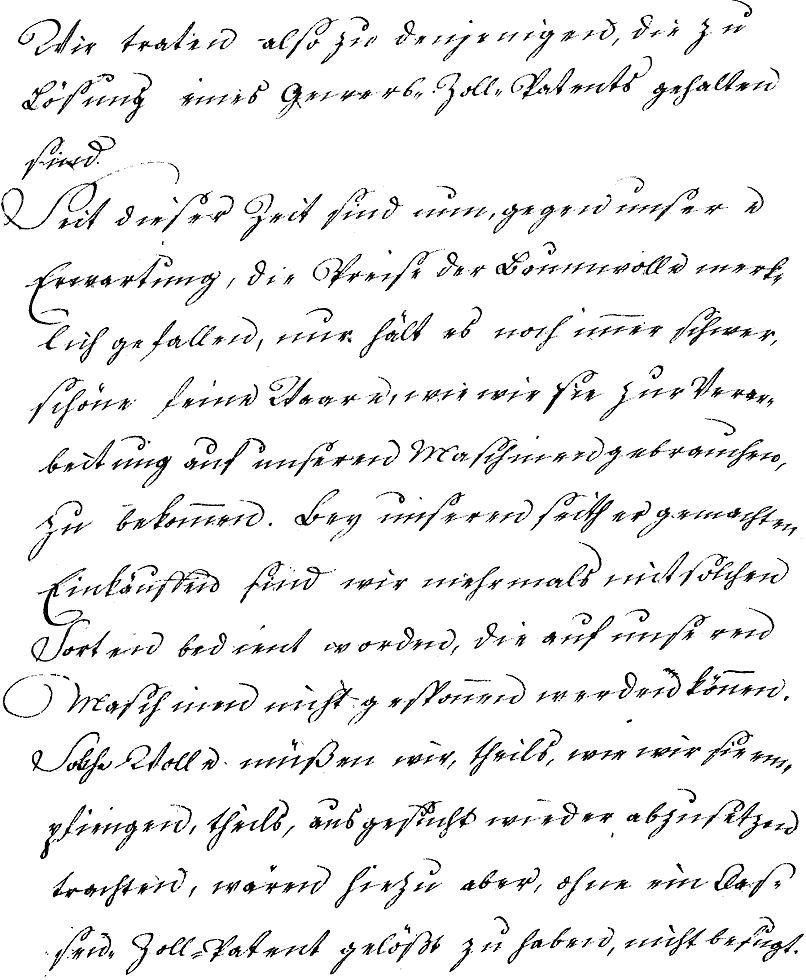 Wir traten also zu denjenigen, die zu
Lösung eines Gewerb-Zoll-Patents gehalten
sind.
Seit dieser Zeit sind nun, gegen unsere
Erwartung, die Preise der Baumwolle merk-
lich gefallen, nur hält es noch im̅er schwer,
schöne feine Waare, wie wir sie zur Verar-
beitung auf unseren Maschinen gebrauchen,
zu beko̅men. Bey unseren seither gemachten
Einkäuffen sind wir mehrmals mit solchen
Sorten bedient worden, die auf unseren
Maschinen nicht gespon̅en werden kön̅en.
Solche Wolle müßen wir, theils, wie wir sie em-
pfiengen, theils, ausgesucht wieder abzusetzen
trachten, wären hiezu aber, ohne ein Cas-
sen-Zoll-Patent gelößt zu haben, nicht befugt.